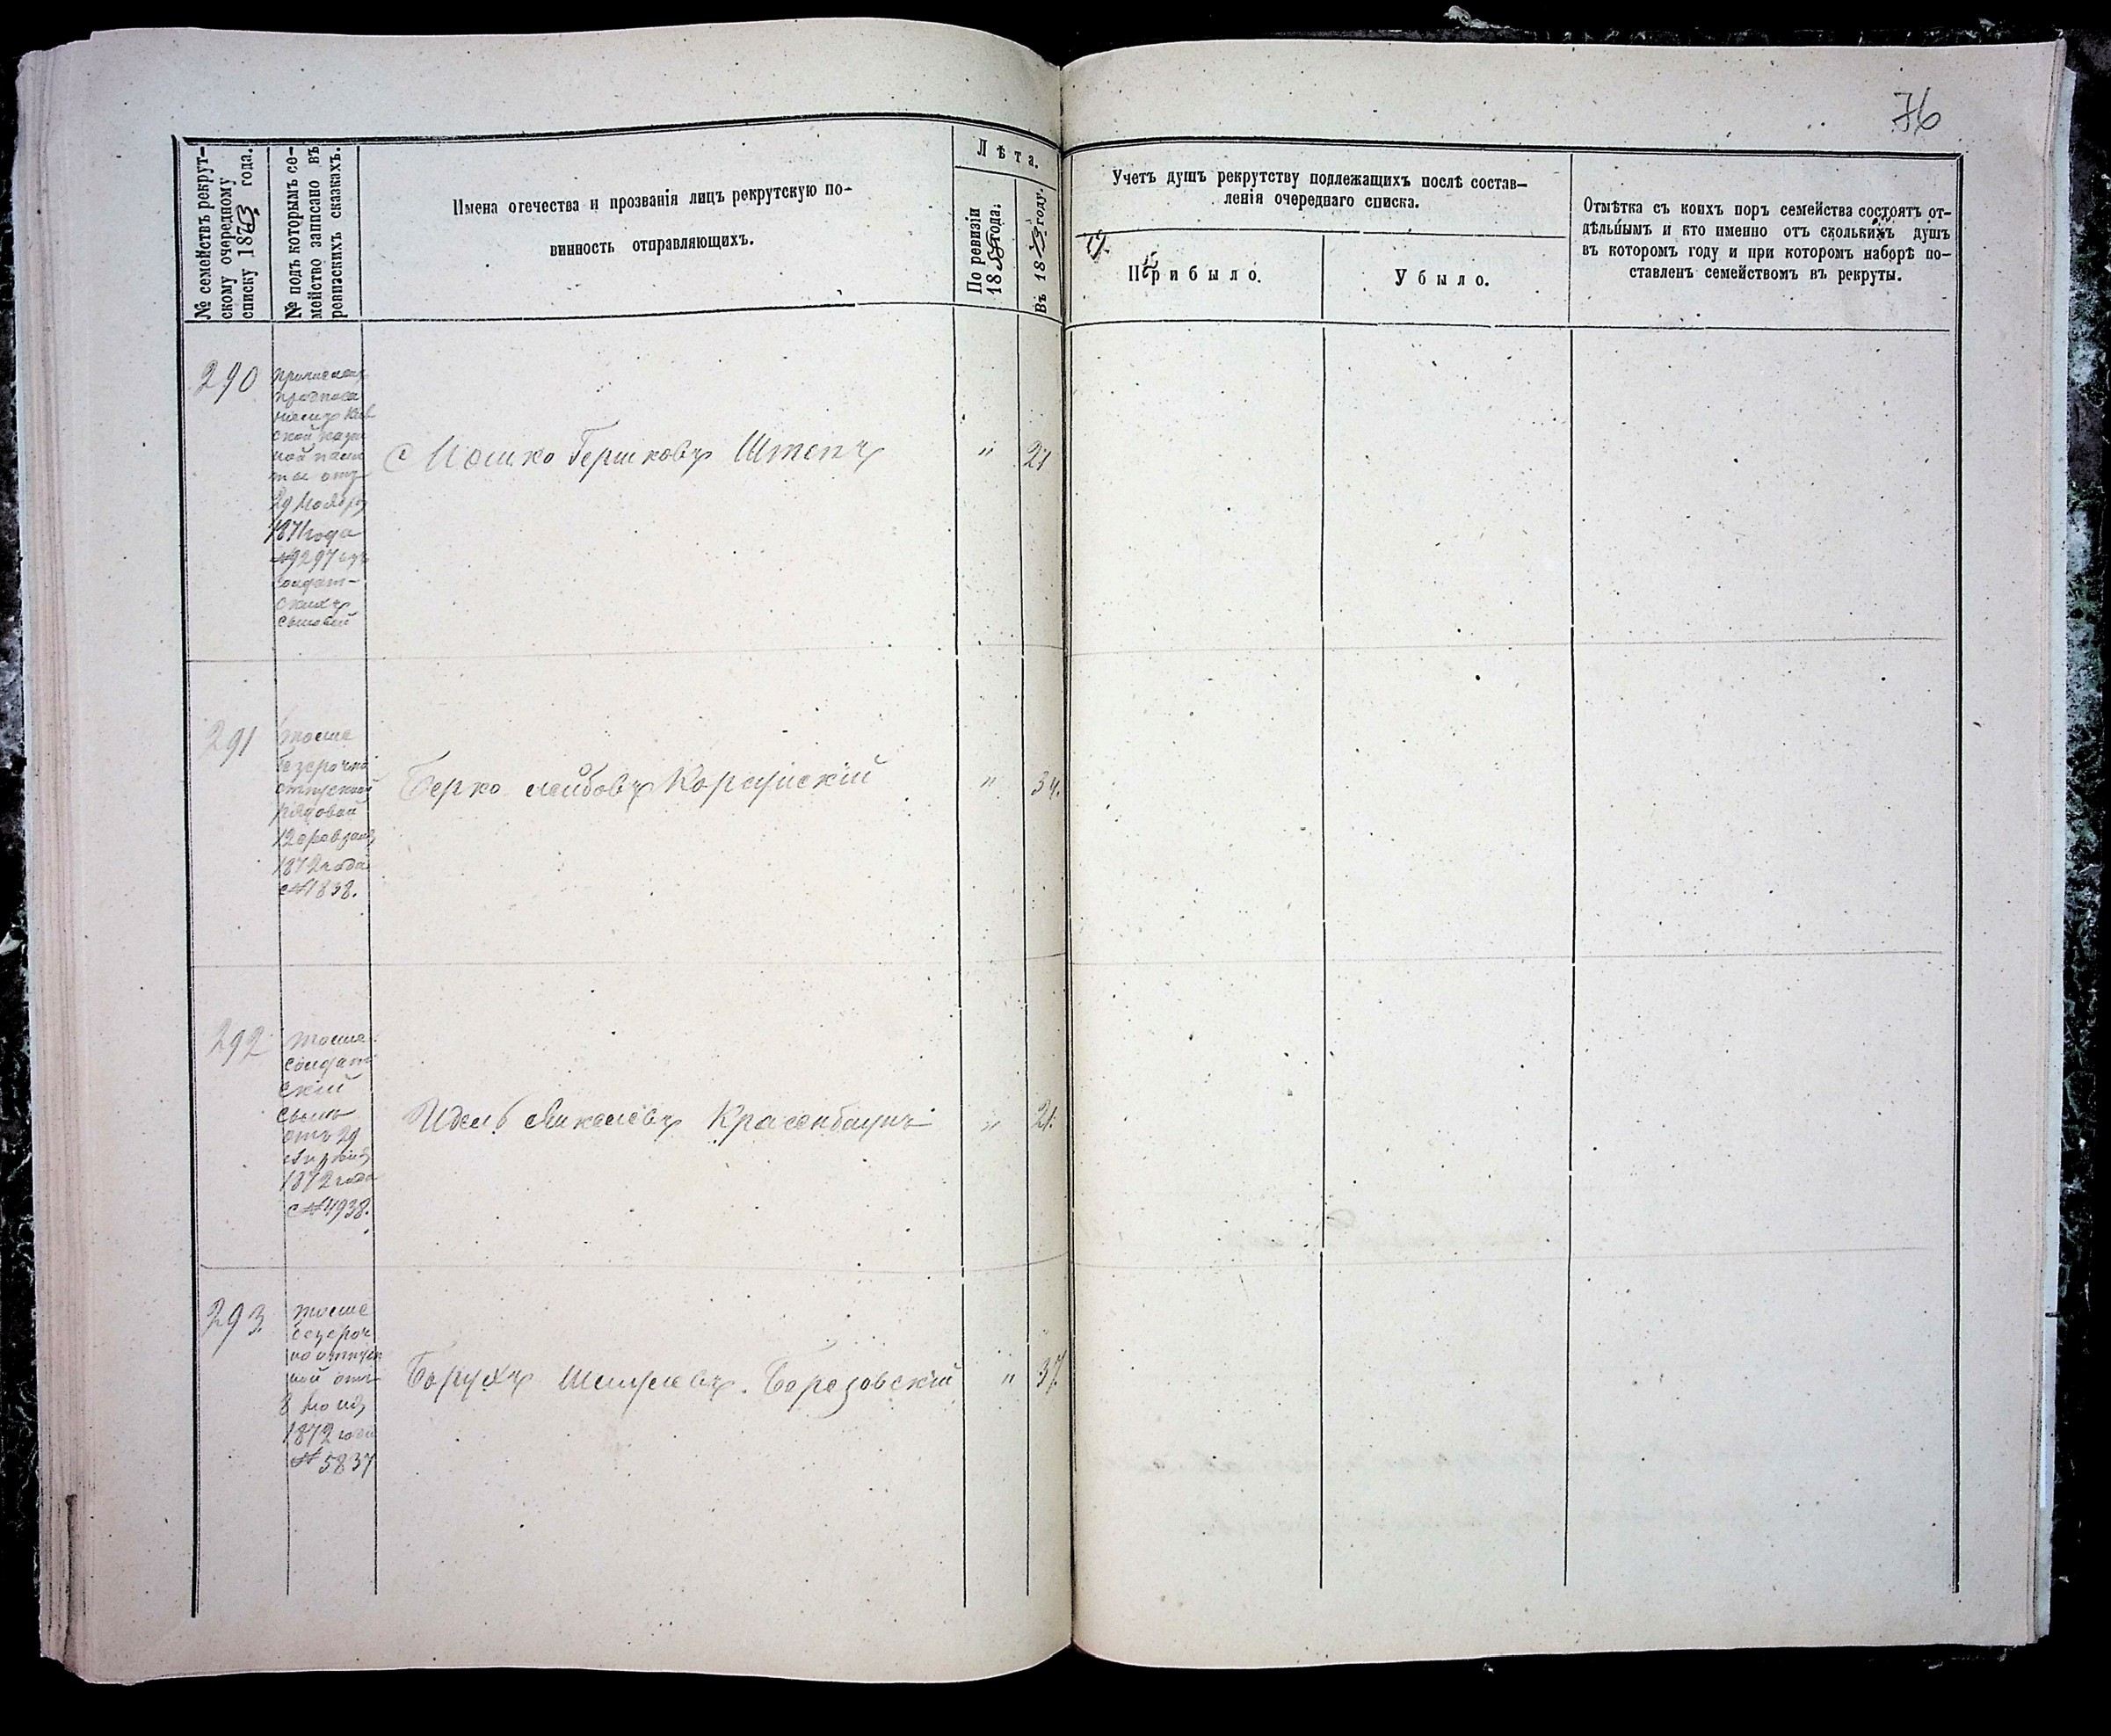 76
№ семействъ рекрут-
скому очередному
списку 1873 года.
№ подъ которымъ се-
мейство записано въ
ревизскихъ сказкахъ.
Имена отечества и прозванія лицъ рекрутскую по-
винность отправляющихъ.
Лѣта.
По ревизіи
1858 года.
Въ 1873 году.
Учетъ душъ рекрутству подлежащихъ послѣ состав-
ленія очереднаго списка.
Прибыло.
Убыло.
Отмѣтка съ коихъ поръ семейства состоятъ от-
дѣльнымъ и кто именно отъ сколькихъ душъ
въ которомъ году и при которомъ наборѣ по-
ставленъ семействомъ въ рекруты.
290
отъ
29 Ноября
1871 года
№9297 изъ
солдат-
скихъ
сыновей
Мошко Гершковъ Штепъ
"
21
291
тоже
безсрочно
отпускной
рядовой
12 февраля
1872 года
№1838.
Берко Лейбовъ Корсунскій
"
34.
292
тоже
солдат
скій
сынъ
отъ 29
Апрѣля
1872 года
№4938.
Идель
"
21.
293
тоже
безсроч
но отпуск
ной отъ
8 Іюня
1872 года
№ 5837
Борухъ Шмулевъ Березовскій
"
37.